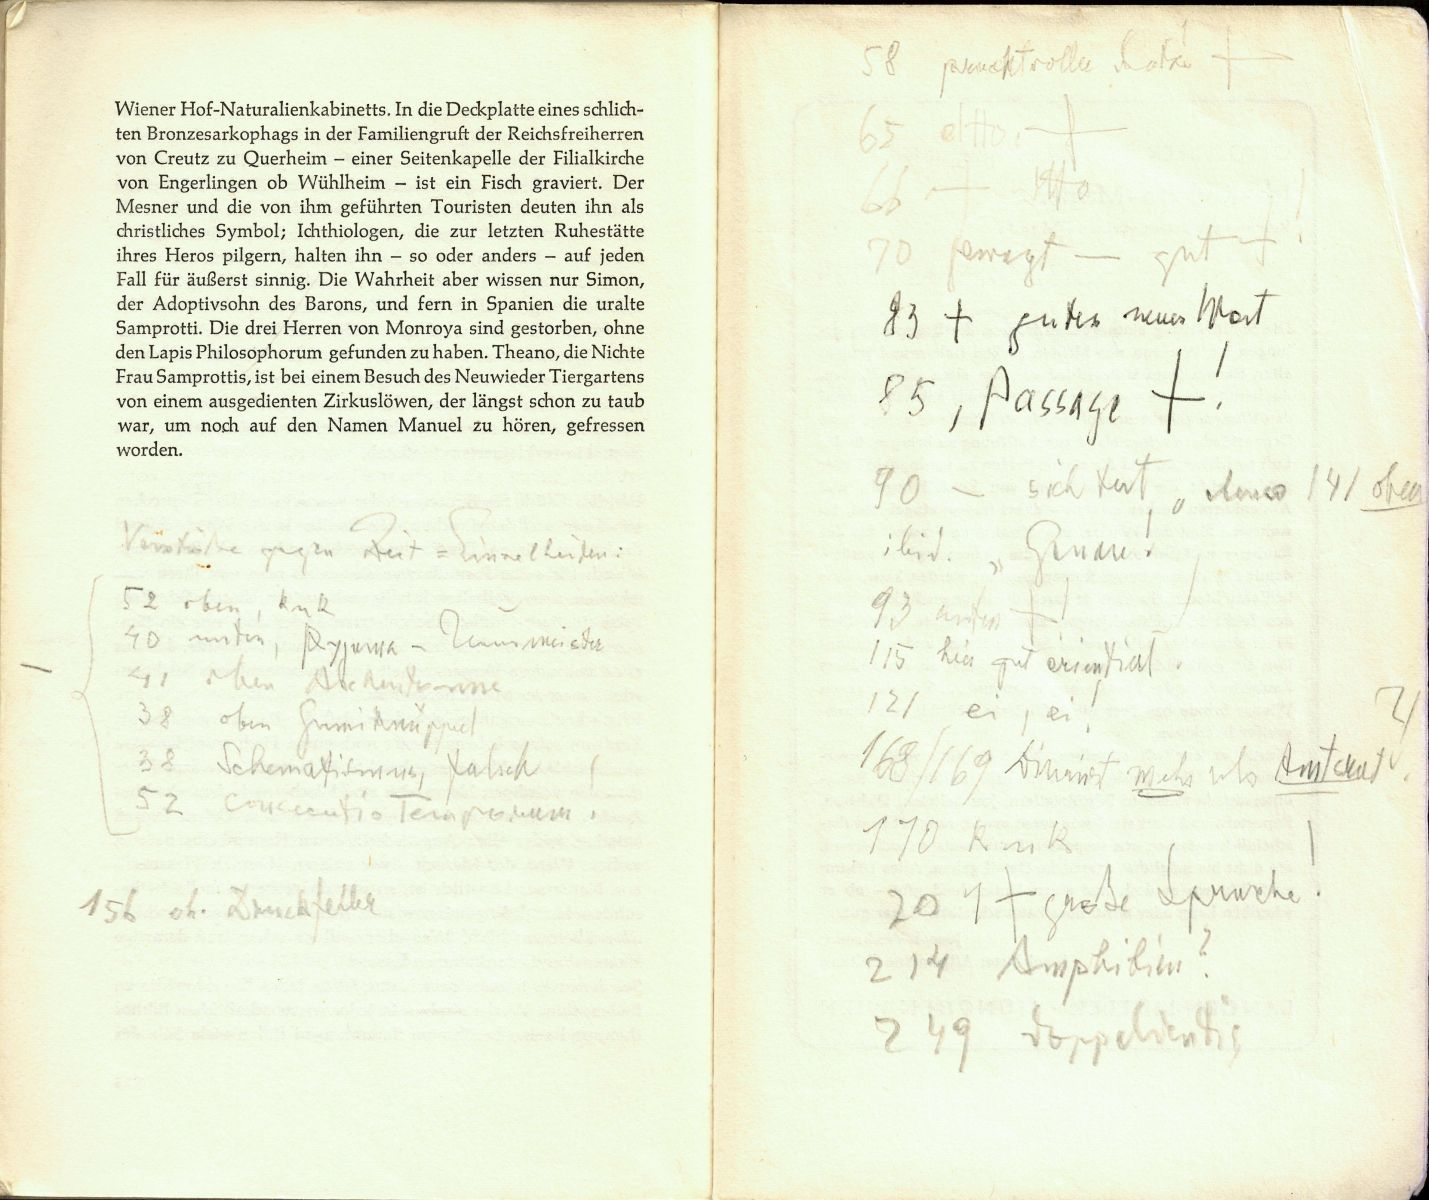 Wiener Hof-Naturalienkabinetts. In die Deckplatte eines schlich-
ten Bronzesarkophags in der Familiengruft der Reichsfreiherren
von Creutz zu Querheim – einer Seitenkapelle der Filialkirche
von Engerlingen ob Wühlheim – ist ein Fisch graviert. Der
Mesner und die von ihm geführten Touristen deuten ihn als
christliches Symbol; Ichthiologen, die zur letzten Ruhestätte
ihres Heros pilgern, halten ihn – so oder anders – auf jeden
Fall für äußerst sinnig. Die Wahrheit aber wissen nur Simon,
der Adoptivsohn des Barons, und fern in Spanien die uralte
Samprotti. Die drei Herren von Monroya sind gestorben, ohne
den Lapis Philosophorum gefunden zu haben. Theano, die Nichte
Frau Samprottis, ist bei einem Besuch des Neuwieder Tiergartens
von einem ausgedienten Zirkuslöwen, der längst schon zu taub
war, um noch auf den Namen Manuel zu hören, gefressen
worden.
Verstöße gegen Zeit = Einzelheiten:
52 oben, kuk
40 unten, Pyjama –
41 oben
38 oben Gumiknüppel
38 Schematismus, falsch
52 Temporum!
156 ob. Druckfehler
58 prachtvolle +
65 +
66 +
70 gewagt — gut +!
83 + gutes neues Wort
85, Passage +!
90 — 141 oben
ibid. „Genau!
93 unten +
115 hier gut orientiert.
121 ei, ei!
168/169 mehr als
170 kuk
201 + große Sprache!
214 Amphibien?
249